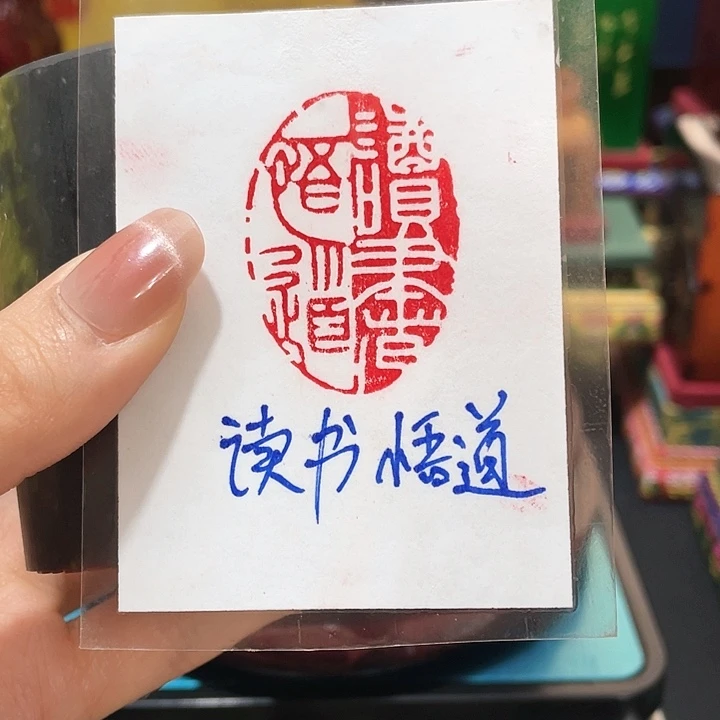 讀書悟道
读书悟道